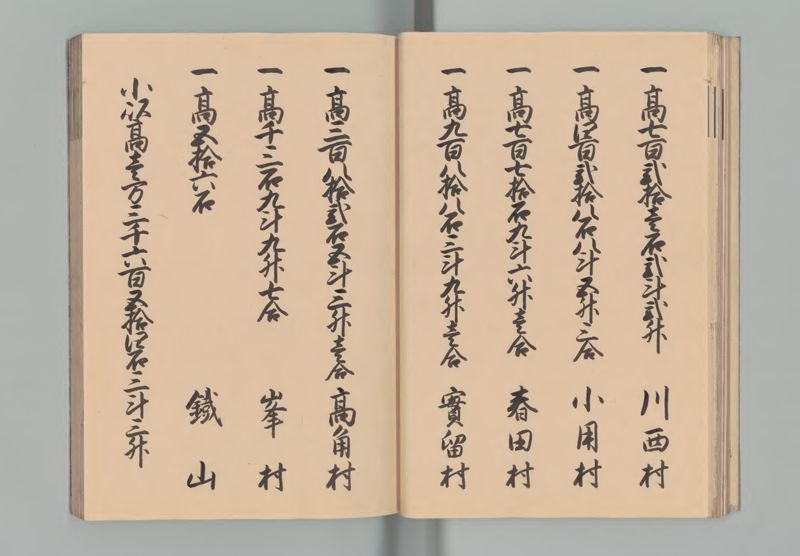 一高七百弐拾壱石弐斗弐升 川西村
一高四百弐拾八石八斗五升三合 小用村
一高七百七拾石九斗六升壱合 春田村
一高九百八拾八石三斗九升壱合 實留村
一高三百八拾弐石五斗三升壱合 高角村
一高千三石九斗九升七合 峯村
一高五拾六石 鐵山
小以高壱万三千六百五拾四石三斗三升